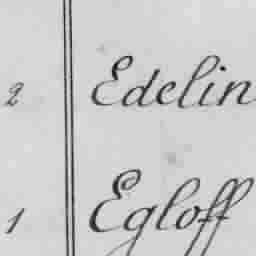 2 Edelin
1 Egloff